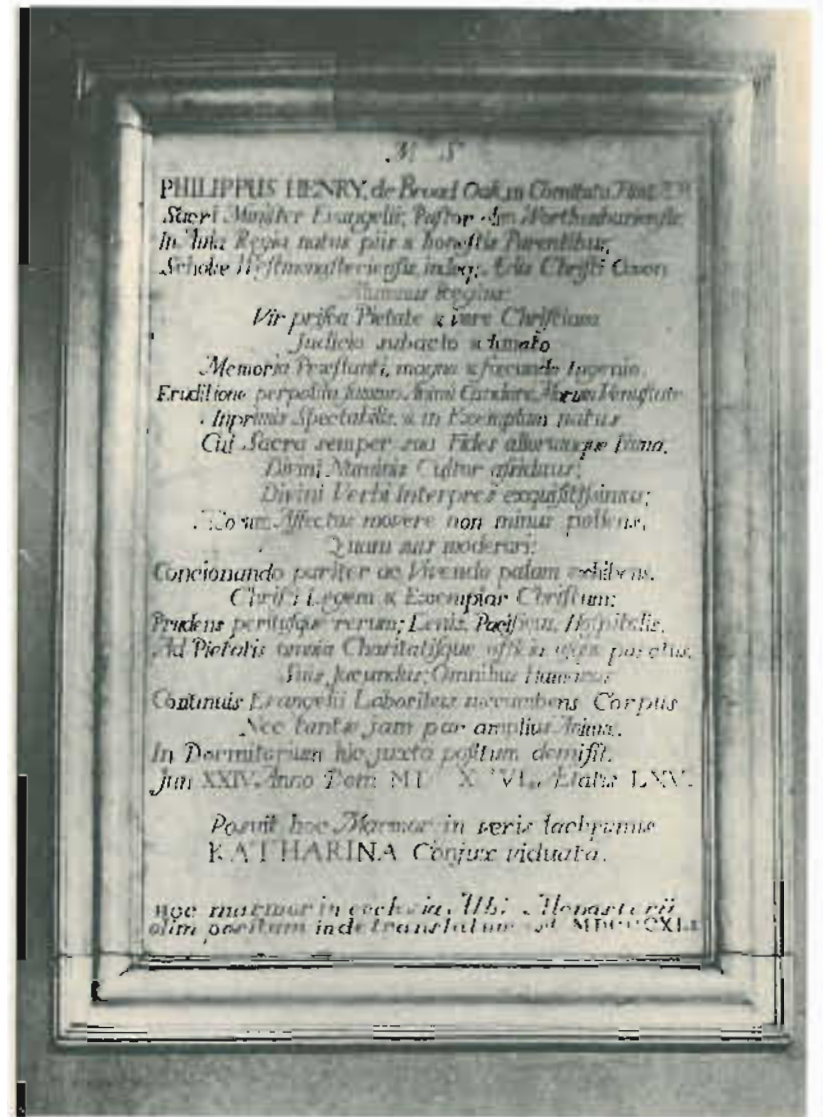 M S
PHILIPPUS HENRY, de Broad Oak in Comitatu Flint
Sacri Minister Evangelii; Paſtor olim Worthenburienſis
In Aula Regia natus piis & honeſtis Parentibus,
Scholæ Weſtmonaſterienſis indeq; Ædis Chriſti Oxon
Alumnus Regius:
Vir priſca Pietate & vere Chriſtiana
Judicio subacto & limato
Memoria Præſtanti, magno & fæcundo Ingenio,
Eruditione perpolita summo Animi Candore, Morum Venuſtate
Inprimis Spectabilis, & in Exemplum natus
Cui Sacra semper sua Fides aliorumque Fama,
Divini Numinis Cultor aſſiduus;
Divini Verbi Interpres exquiſitiſſimus;
Aliorum Affectus movere non minus pollens,
Quam suos moderari:
Concionando pariter ac Vivendo palam exhibens,
Chriſti Legem & Exemplar Chriſtum;
Prudens peritúſque rerum; Lenis, Pacificus, Hoſpitalis,
Ad Pietatis omnia Charitatiſque officia uſque paratus,
Suis Jucundus; Omnibus Humanus;
Continuis Evangelii Laboribus succumbens Corpus
Nec tantæ jam par amplius Animæ,
In Dormitorium hic juxta poſitum demiſit.
Jun XXIV. Anno Dom Ætatis LXV.
Posuit hoc Marmor in veris lachrymis
KATHARINA Conjux viduata.
hoc marmor in ecclesia Albi Monasterii
olim positum inde translatum